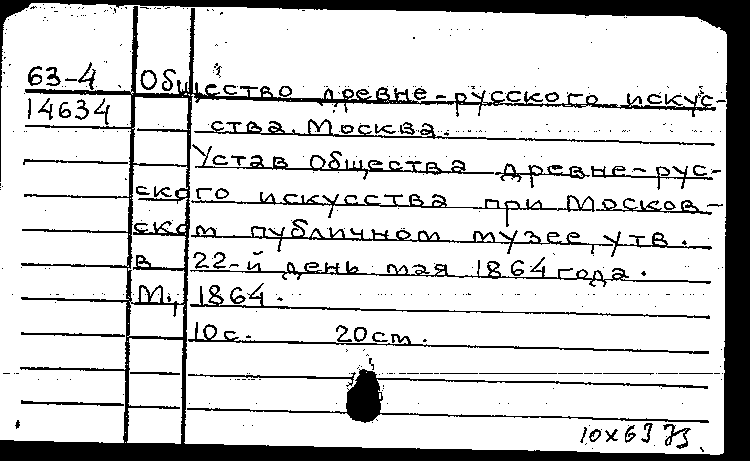 63-4 Общество древне-русского искус-
14634 ства. Москва.
Устав Общества древне-рус-
ского искусства при Москов-
ском публичном музее, утв.
в 22-й день мая 1864 года.
М., 1864.
10с. 20см.
10х63